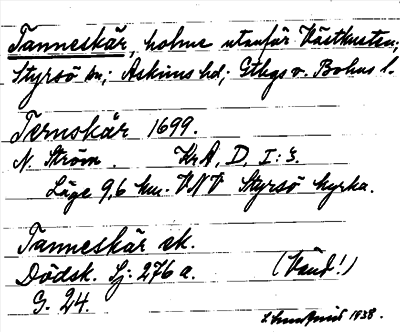 Tanneskär, holme utanför Västkusten;
Styrsö sn; Askims hd; Gtbgs o. Bohus l.
Ternskär 1699.
N. Ström. KrA, D. I: 3.
Läge 9,6 km. VNV Styrsö kyrka.
Tanneskär ek.
Dödsk. Sj: 276 a. (Vänd!)
G. 24.
1938.